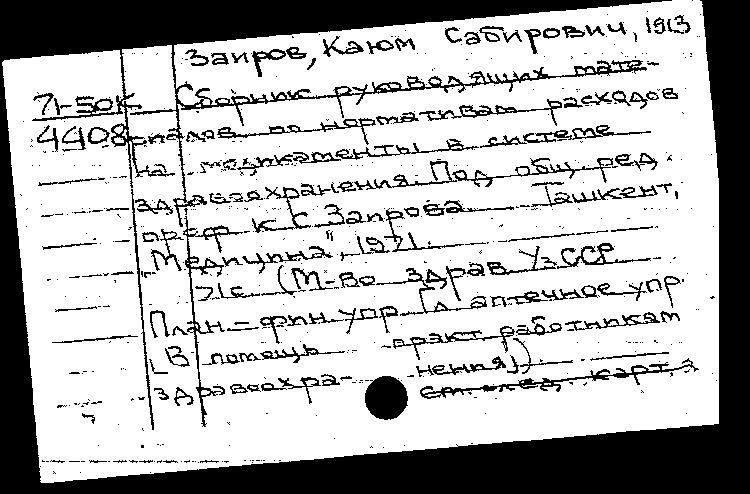 Заиров, Каюм Сабирович, 1913
71-50к Сборник руководящих мате-
4408 риалов по нормативам расходов
на медикаменты в системе
здравоохранения. Под общ. ред.
проф К С Заирова. Ташкент,
"Медицина", 1971.
71с (М-во здрав УзССР
План-фин. упр. Гл аптечное упр.
[В помощь практ. работникам
здравоохра- нения])
см. след. карт.